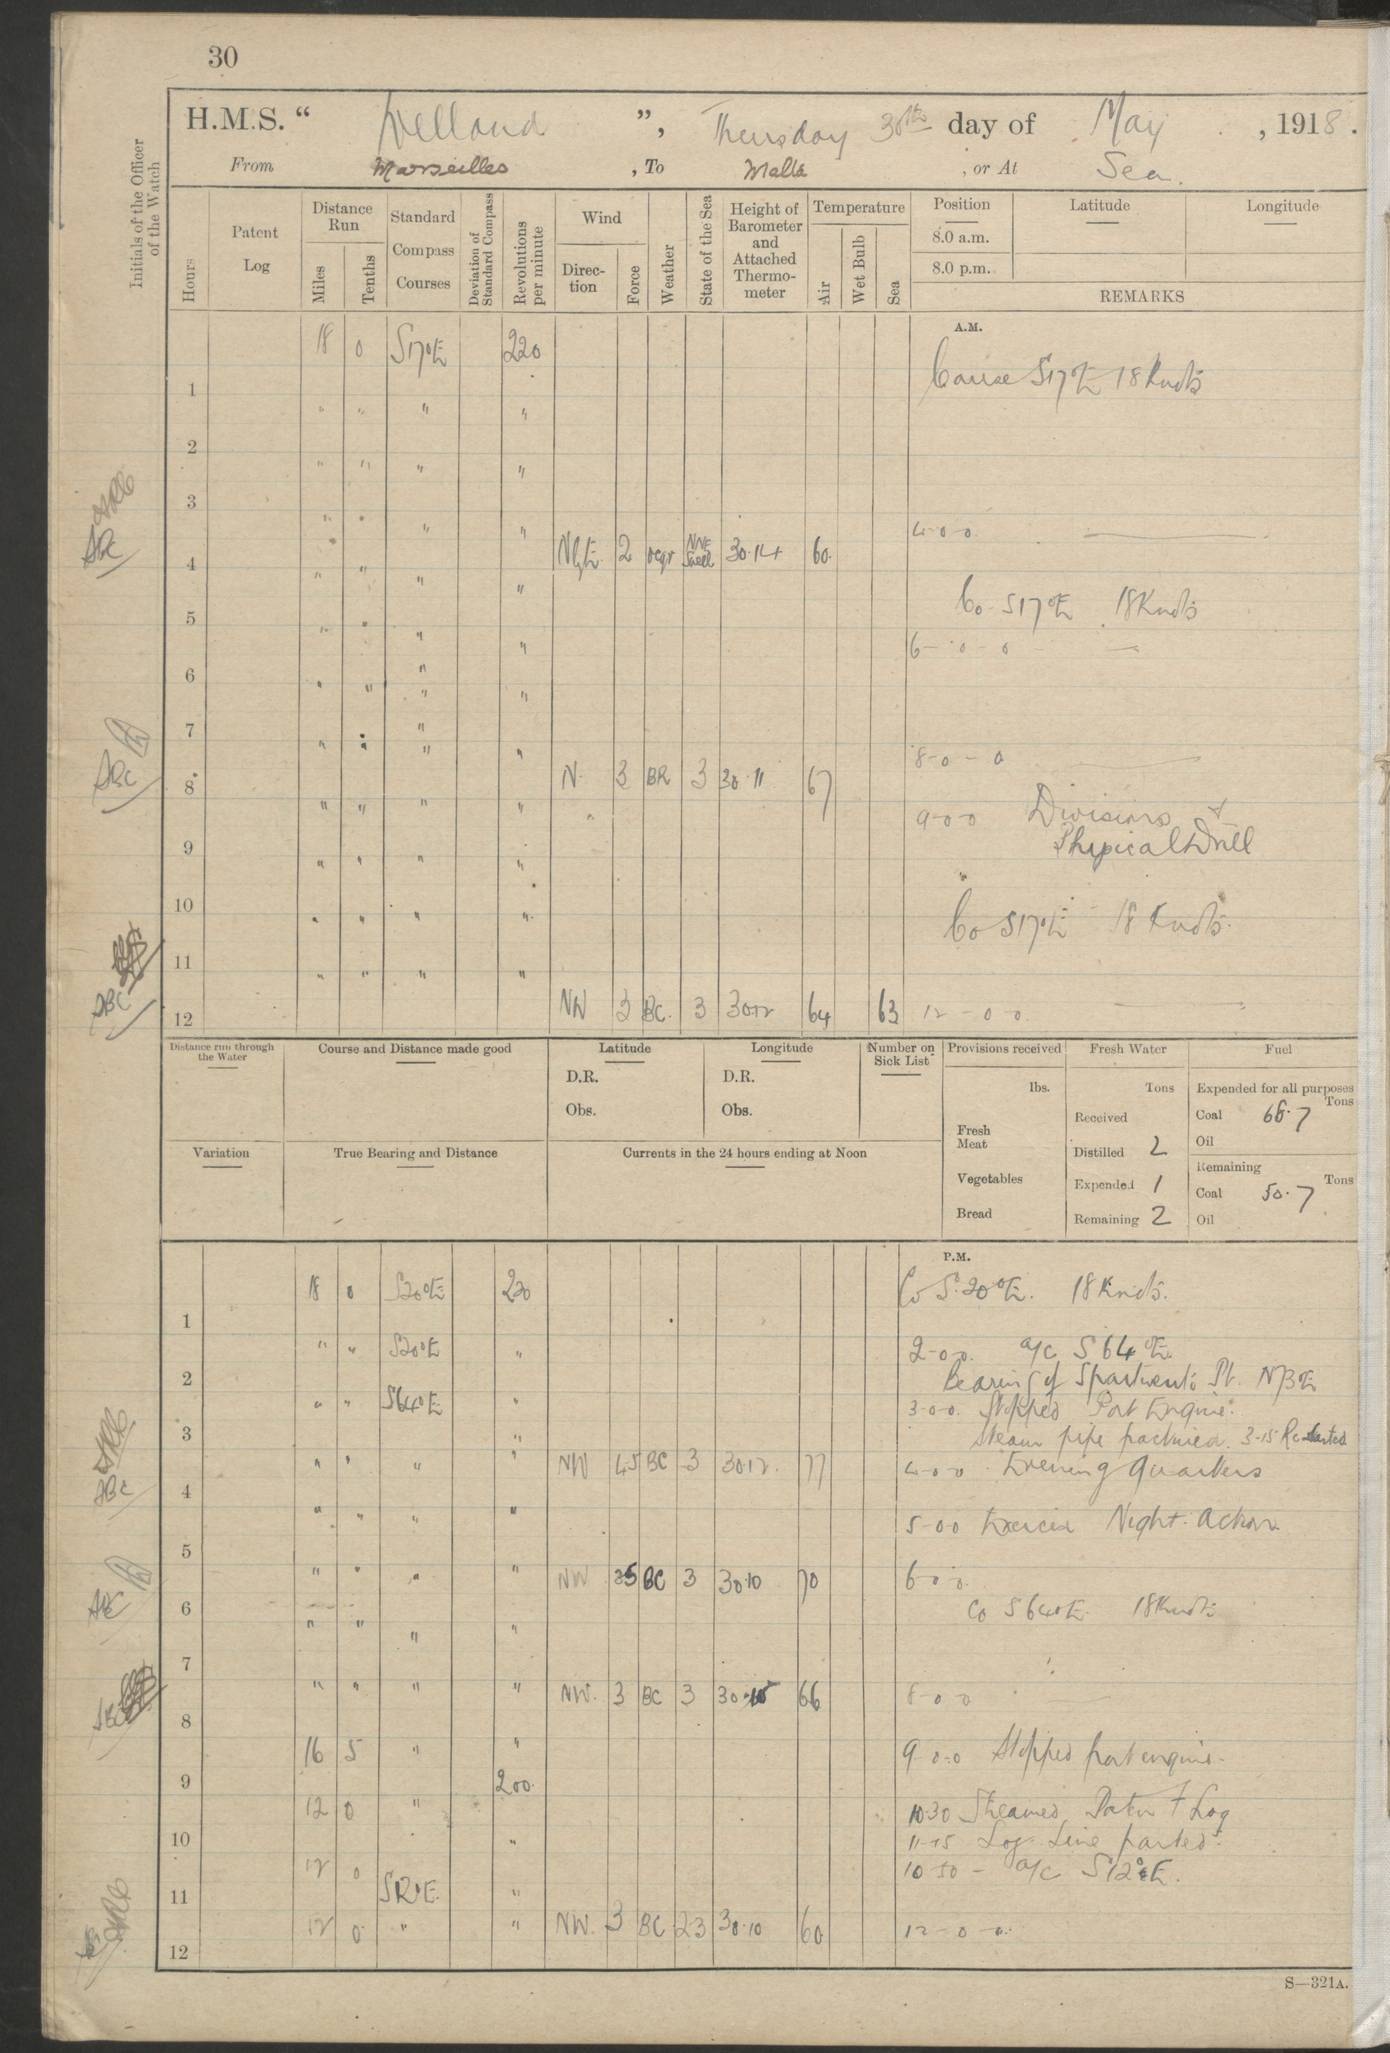 30
H.M.S. “ Welland ”, Thursday 30th day of May , 1918.
From Marseilles , To Malta , or At Sea.
Initials of the Officer of the Watch
Hours
Patent Log
Distance Run
Miles
Tenths
Standard Compass Courses
Deviation of Standard Compass
Revolutions per minute
Wind
Direction
Force
Weather
State of the Sea
Height of Barometer and Attached Thermometer
Temperature
Air
Wet Bulb
Sea
Position
8.0 a.m.
8.0 p.m.
Latitude
Longitude
REMARKS
A.M.
18 0 S17°E 220
Course S17°E 18 Knots
1 " " " "
2 " " " "
3 " " " "
4 NbyE 2 ocqr NNE Swell 30.14 60. 4-0-0
" " " "
Co S17°E 18 Knots
5 " " " "
6-0-0
6 " " " "
7 " " " "
8-0-0
8 N. 3 BR 3 30.11 67
" " " "
9-0-0 Divisions &
Physical Drill
9 " " " "
10 " " " "
Co S17°E 18 Knots.
11 " " " "
12 NW 3 BC. 3 30.12 64 63 12-0-0
Distance run through the Water
Course and Distance made good
Latitude
Longitude
D.R. D.R.
Obs. Obs.
Number on Sick List
Provisions received
lbs.
Fresh Meat
Vegetables
Bread
Fresh Water
Tons
Received
Distilled 2
Expended 1
Remaining 2
Fuel
Expended for all purposes
Tons
Coal 68.7
Oil
Remaining
Tons
Coal 50.7
Oil
Variation
True Bearing and Distance
Currents in the 24 hours ending at Noon
P.M.
18 0 S20°E 220 Co S.20°E. 18 Knots.
1
" " S20°E " 2-0-0. a/c S 64°E.
2 Bearing of Spartivento Pt.
" " S64°E " 3-0-0. Stopped Port Engine.
3 Steam pipe fractured. 3-15 Re started
" " " " NW 45 BC 3 30.12. 77 4-0-0 Evening Quarters
4
" " " " 5-0-0 Exercise Night Action
5
" " " " NW 35 BC 3 30.10 70 6-0-0.
6 Co S64°E 18 Knots
" " " "
7
" " " " NW. 3 BC 3 66 8-0-0
8
16 5 " " 9-0-0 Stopped port engine.
9 200.
12 0 " 10-30 Streamed Patent Log
10 " 11-15 Log Line parted.
12 0 10-50 - a/c S12°E.
11 S12°E. "
12 0 " " NW. 3 BC 23 30.10 60 12-0-0.
12
S—321A.